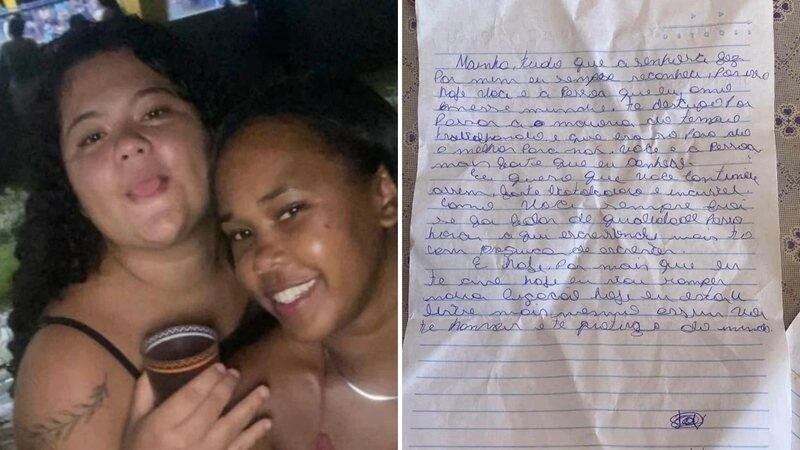 Mainha, tudo que a senhora fez
Por mim eu sempre reconheci, Por isso
hoje voce e a Pessoa que eu amo
nesse mundo, te desculpo Por
Passar a a maioria do tempo
trabalhando e que era so Para da
o melhor Para nos, voce e a Pessoa
mais forte que eu conheci.
Eu quero que voce continue
assim, forte e incrivel.
Como voce sempre
se da de qualidade Para
aqui escrevendo mais to
com preguiça de escrever.
E hoje, Por mais que eu
te ame hoje eu vou romper
nossa ligação hoje eu estou
livre mais mesmo assim vou
te honrar e te protege do mundo.